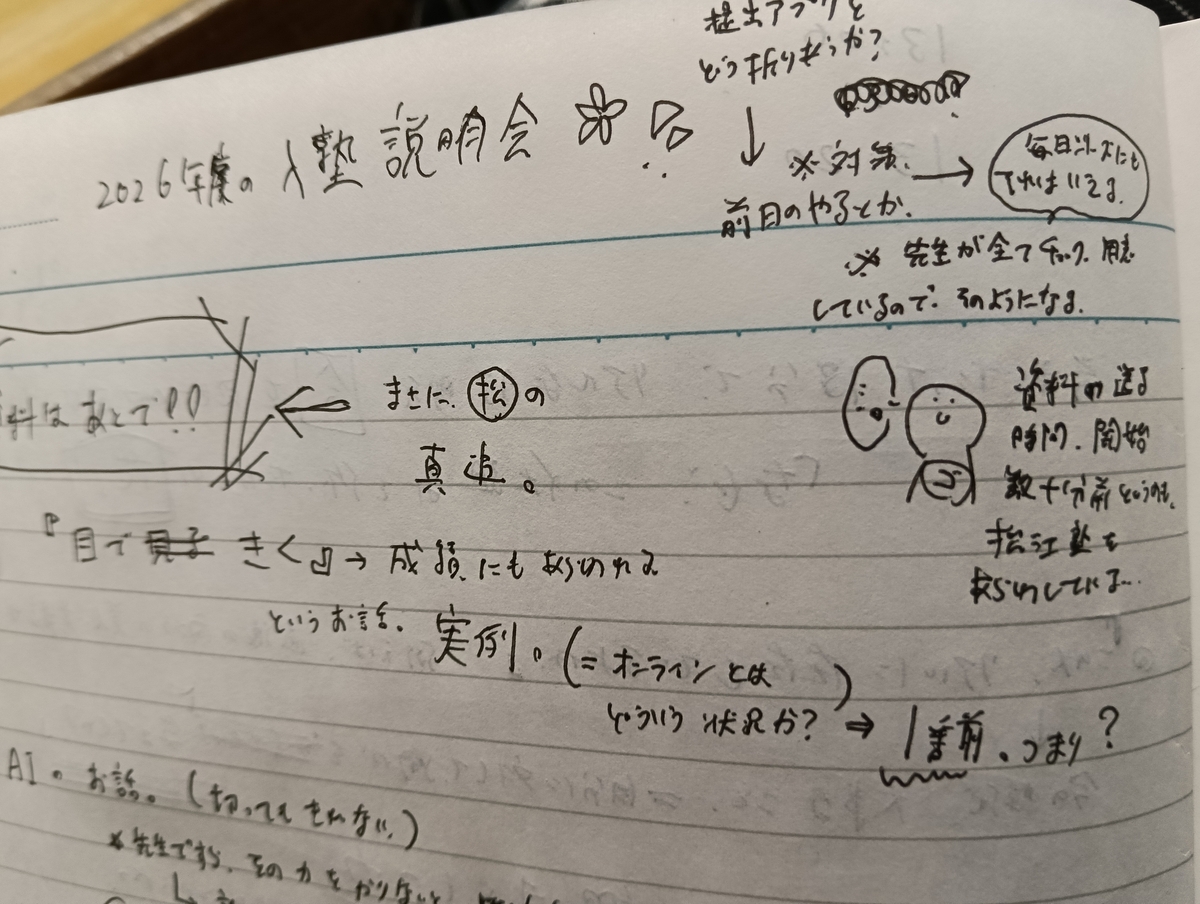 提出アプリと
どう折りあうか?
2026年度の入塾説明会
※対策. →
毎日決まにも
でればいえる.
前日のやるとか.
※先生が全てチェック.用意
しているので.そのようになる.
料は あとで!!
← まさに.松の
真迫。
資料の送る
時間.開始
数十分前というのも.
松江塾を
あらわしている...
『目で きく』→成績にもあらわれる
というお話. 実例。(=オンラインとは
どういう状況か?) ⇒ 1番前.つまり?
AI.お話。(切ってもきれない.)
*先生ですら.その力をかりないと